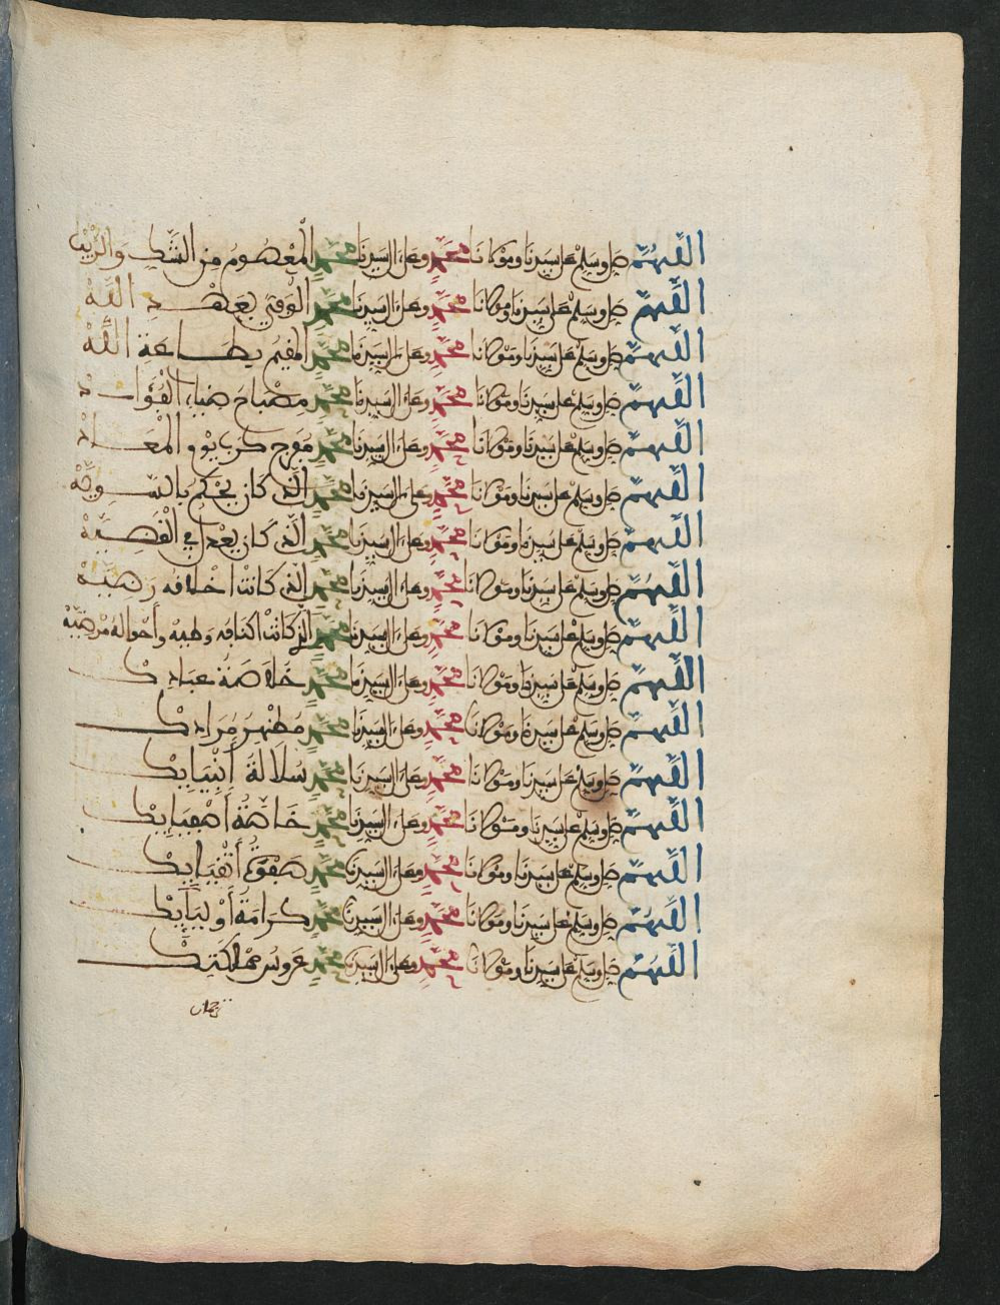 اللهم صل وسلم على سيدنا ومولانا محمد وعلى ءال سيدنا محمد المعصوم من الشك والريب
اللهم صل وسلم على سيدنا ومولانا محمد وعلى ءال سيدنا محمد الوفي بعهد الله
اللهم صل وسلم على سيدنا ومولانا محمد وعلى ءال سيدنا محمد المقيم بطاعة الله
اللهم صل وسلم على سيدنا ومولانا محمد وعلى ءال سيدنا محمد مصباح ضياء الفؤاد
اللهم صل وسلم على سيدنا ومولانا محمد وعلى ءال سيدنا محمد مفرج كرب يوم المعاد
اللهم صل وسلم على سيدنا ومولانا محمد وعلى ءال سيدنا محمد الذي كان يحكم بالسوية
اللهم صل وسلم على سيدنا ومولانا محمد وعلى ءال سيدنا محمد الذي كان يعدل في القضية
اللهم صل وسلم على سيدنا ومولانا محمد وعلى ءال سيدنا محمد الذي كانت اخلاقه رضية
اللهم صل وسلم على سيدنا ومولانا محمد وعلى ءال سيدنا محمد الذي كانت اكنافه وطية وأحواله مرضية
اللهم صل وسلم على سيدنا ومولانا محمد وعلى ءال سيدنا محمد خلاصة عبادك
اللهم صل وسلم على سيدنا ومولانا محمد وعلى ءال سيدنا محمد مظهر مرادك
اللهم صل وسلم على سيدنا ومولانا محمد وعلى ءال سيدنا محمد سلالة أنبيايك
اللهم صل وسلم على سيدنا ومولانا محمد وعلى ءال سيدنا محمد خاصة أصفيايك
اللهم صل وسلم على سيدنا ومولانا محمد وعلى ءال سيدنا محمد صفوة أتقيايك
اللهم صل وسلم على سيدنا ومولانا محمد وعلى ءال سيدنا محمد كرامة أوليايك
اللهم صل وسلم على سيدنا ومولانا محمد وعلى ءال سيدنا محمد عروس مملكتك